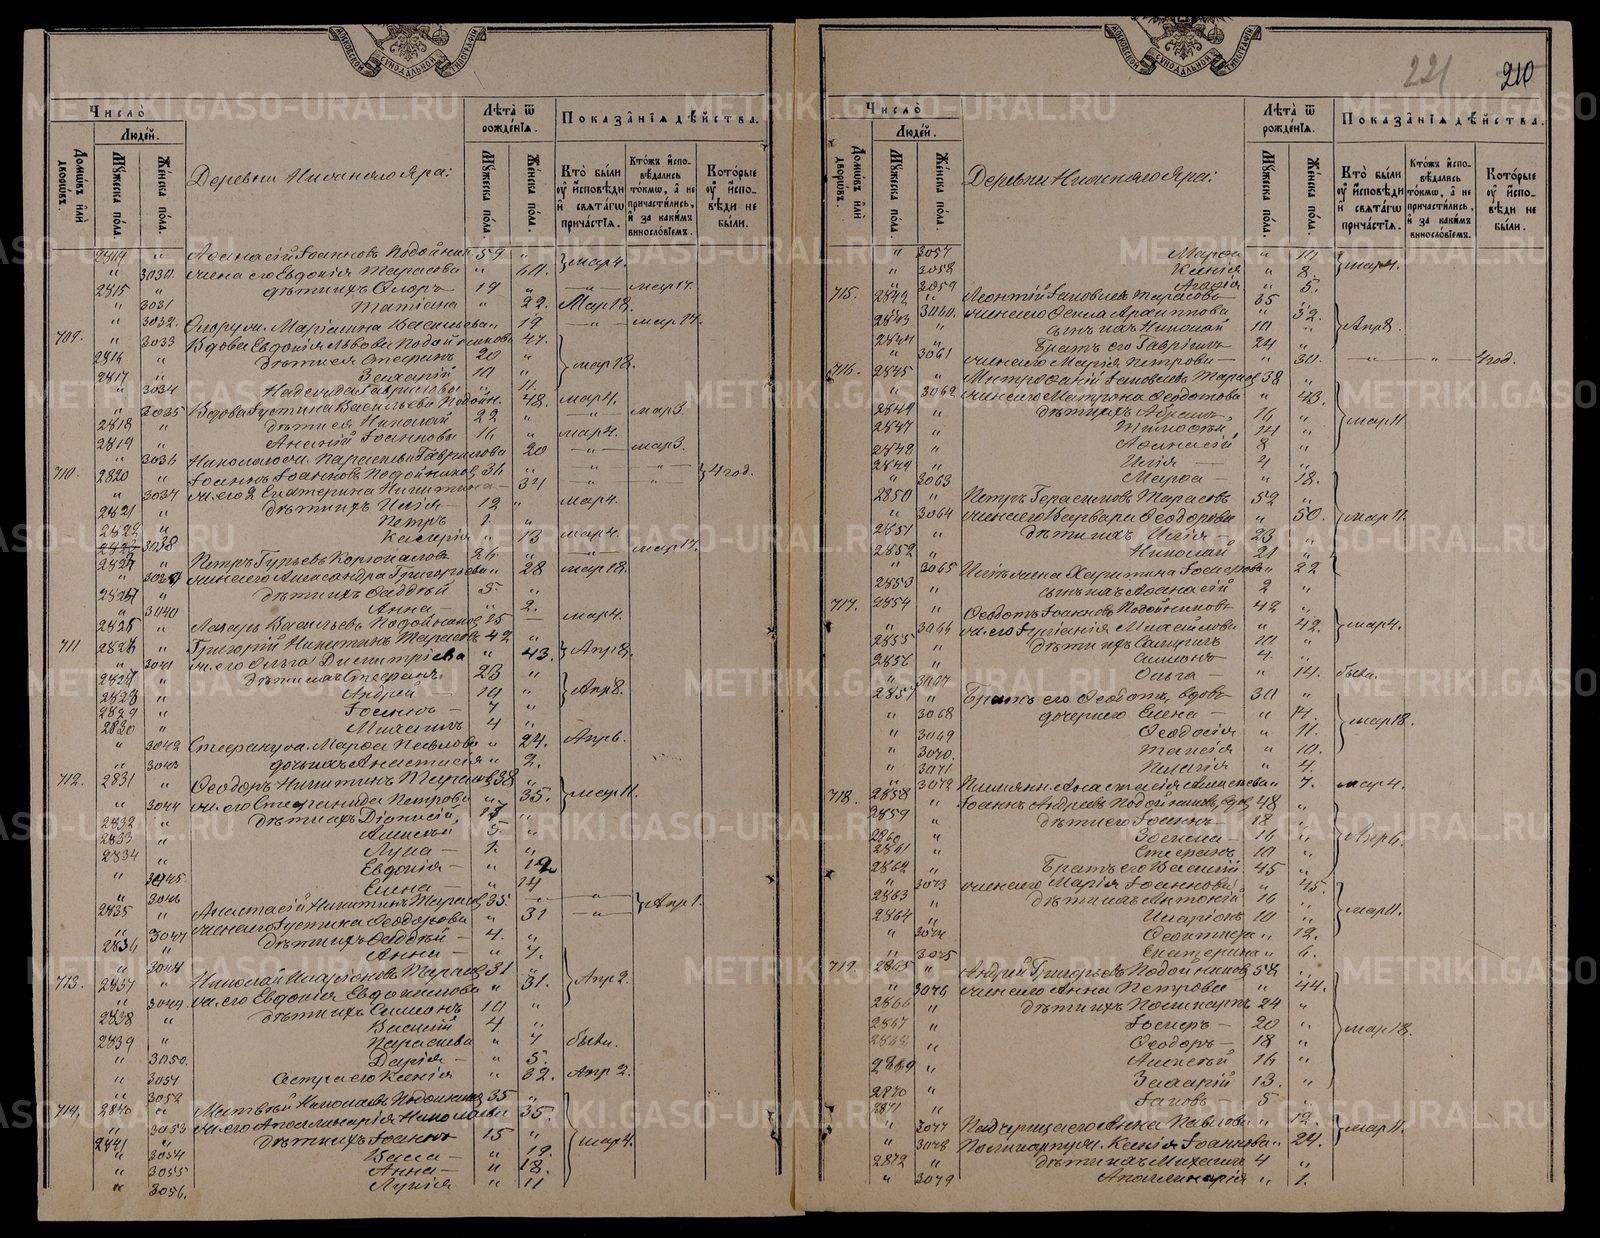 МОСКОВСКОЙ СѴНОДАЛЬНОЙ ТИПОГРАФІИ
Число̀
Людей.
Домѡвъ или дворѡвъ.
Мꙋжеска пола.
Женска пола.
Деревни Нижняго Яра:
Лѣта̀ ѿ рожденїѧ.
Мꙋжеска пола.
Женска пола.
Показанїѧ дѣйства.
Кто̀ были оу исповѣди и свѧтагѡ причастїѧ.
Ктожъ исповѣдались токмѡ, а не причастились, и за какимъ винословїемъ.
Которые оу исповѣди не были.
2814 " Аѳанасій Іоанновъ Подойниц 59 " мар 4.
" 3030. жена его Евдокія Тарасова " 60.
2815 " дѣти ихъ Флоръ 19 " — мар 17.
" 3031 Татіана " 22. Мар 18.
" 3032. Флору ж. Маріанна Васильева " 19 — " — мар 17.
709. " 3033 Вдова Евдокія Львова Подойникова 47.
2816 " дѣти ея Стефанъ 20 " мар 18.
2817 " Захарій 10 "
" 3034 Надежда Гаврилова " 11.
" 3035 Вдова Іустина Васильева Подойн. 48. мар 4.
2818 " дѣти ея Николай 22 " — " — мар 3.
2819 " Ананій Іоанновъ 16 " мар 4.
" 3036 Николаю ж. Параскева Гаврилова 20 — " — мар 3.
710. 2820 " Іоаннъ Іоанновъ Подойников 36 " — " — 4 год.
" 3037 ж. его 2 Екатерина Никитина — 34 "
2821 " дѣти ихъ Илія — 12 " мар 4.
2822 " Петръ 1. "
3038 " 13 мар 4.
" Петръ Гурьевъ 26 " — " — мар 17.
" жена его Александра Григорьева " 28 мар 18.
" дѣти ихъ Фаддей 5. "
" 3040 Анна — " 2.
2825 " Лазарь Васильевъ Подойников 25 — мар 4.
711 " Григорій Никитинъ Тарасовъ 42 " Апр 8.
" 3041 ж. его Ольга Димитріева " 43.
" дѣти ихъ Стефанъ 23 "
2828 " Андрей — 10 " Апр 8.
2829 " 7 "
2830 " Михаилъ 4 "
" 3042 Стефану ж. Марѳа Павлова " 24. Апр 6.
" 3043 дочь ихъ Анастасія " 2.
712. 2831 " Ѳеодоръ Никитинъ Тарасовъ 38 " мар 11.
" 3044 ж. его Стефанида Петрова " 35.
2832 " дѣти ихъ Діонисій, "
2833 " Алексѣй 5 "
2834 " Лука — 1. "
" 3045. Евдокія — " 12
" 3046 Елена — " 14
2835 " Анастасій Никитинъ Тарасов 35. — " — Апр 1.
" 3047 жена его Іустина Ѳеодорова " 31 — " —
2836 " дѣти ихъ Фаддей — 4. "
" 3048 Анна — " 7.
713. 2837 " Николай Иларіоновъ Тарасов 31 " Апр 2.
" 3049 ж. его Евдокія Евдокимова " 31.
2838 " дѣти ихъ Симеонъ 10 "
2839 " Василій 4. "
" 3050. Параскева " 7 бывш.
" 3051 Дарія — " 5.
" 3052 Сестра его Ксенія " 32. Апр 2.
714. 2840 " Матвѣй Николаевъ Подойников 35 "
" 3053 ж. его Аполлинарія Николаева 35. мар 4.
2841 " дѣти ихъ Іоаннъ 15 "
" 3054 Васса — " 19.
" 3055 Анна — " 18.
" 3056. Лукія " 11
221
210
МОСКОВСКОЙ СѴНОДАЛЬНОЙ ТИПОГРАФІИ
Число̀
Людей.
Домѡвъ или дворѡвъ.
Мꙋжеска пола.
Женска пола.
Деревни Нижняго Яра:
Лѣта̀ ѿ рожденїѧ.
Мꙋжеска пола.
Женска пола.
Показанїѧ дѣйства.
Кто̀ были оу исповѣди и свѧтагѡ причастїѧ.
Ктожъ исповѣдались токмѡ, а не причастились, и за какимъ винословїемъ.
Которые оу исповѣди не были.
" 3057 Марѳа " мар 4.
" 3058 Ксенія " 8.
" 3059 Агафія " 5.
715. 2842 " Леонтій Іаковлевъ Тарасовъ 35 "
" 3060. жена его Ѳекла Архиппова " 32.
2843 " сынъ ихъ Николай 10 " Апр 8.
2844 " Братъ его Гавріилъ 24 "
" 3061 жена его Марія Петрова — " 30. — " — " 4 год.
716. 2845 " Митрофаній Іаковлевъ Тарасов 38 "
" 3062 жена его Матрона Ѳедотова " 43.
" дѣти ихъ Абрамъ 16 " мар 11
2847 " Тимоѳей 14 "
2848 " Аѳанасій 8 "
2849 " Илія — 4 "
" 3063 Марѳа — " 18.
2850 " Петръ Герасимовъ Тарасовъ 52 "
" 3064 жена его Варвара Ѳеодорова " 50. мар 11.
2851 " дѣти ихъ Илія — 23 "
2852 " Николай 21 "
" 3065 Иліѣ жена Харитина Іосифова " 22
2853 " сынъ ихъ Аѳанасій 2 "
717. 2854 " Ѳедотъ Іоанновъ Подойниковъ 42 "
" 3066 ж. его Михайлова " 42. мар 4.
2855 " дѣти ихъ 10 "
2856 " Симеонъ 4. "
" 3067 Ольга — " 14. бывш.
2857 " Братъ его Ѳеодотъ, вдовъ 30 "
" 3068 дочери его Елена — " 14. мар 18.
" 3069 Ѳеодосія " 11.
" 3070. Таисія " 10.
" 3071 Пелагія " 4.
" 3072 Племянн. Анастасія Алексѣева " 7. мар 4.
718. 2858 " Іоаннъ Андреевъ Подойников, вдов 48 "
2859 " дѣти его Іоаннъ — 18 "
2860 " Зосима — 16 " Апр 6.
2861 " Стефанъ 10 "
2862 " Братъ его Василій 45 "
" 3073 жена его Марія Іоаннова " 45.
2863 " дѣти ихъ Антоній 16 " мар 11.
2864 " Иларіонъ 10 "
" 3074 Ѳеоктиста " 12.
" 3075 Екатерина " 6.
719. 2865 " Андрей Григорьевъ Подойников 52 "
" 3076 жена его Анна Петрова " 44.
2866 " дѣти ихъ Поликарпъ 24 "
2867 " Іосифъ — 20 " мар 18.
2868 " Ѳеодоръ — 18 "
2869 " Алексѣй 16 "
2870 " Захарій 13. "
2871 " Іаковъ — 5 "
" 3077 Падчерица его Анна Павлова " 19. мар 11.
" 3078 Поликарпу ж. Ксенія Іоаннова " 24.
2872 " дѣти ихъ Михаилъ 4 "
" 3079 Аполлинарія " 1.
METRIKI.GASO-URAL.RU